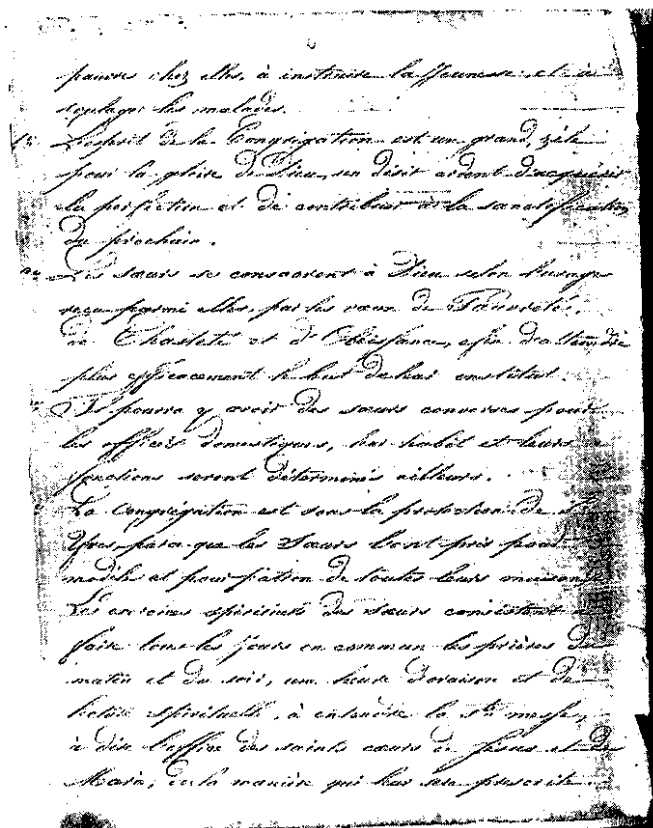 pauvres chez elles, à instruire la jeunesse et à
soulager les malades.
L'esprit de la Congrégation est un grand zèle
pour la gloire de Dieu, un désir ardent d'acquérir
la perfection et de contribuer à la sanctification
du prochain.
Les sœurs se consacrent à Dieu selon l'usage
reçu parmi elles, par les vœux de Pauvreté,
de Chasteté et d'Obéissance, afin d'atteindre
plus efficacement le but de leur institut.
Il pourra y avoir des sœurs converses pour
les offices domestiques, leur habit et leurs
fonctions seront déterminés ailleurs.
La Congrégation est sous la protection de S.
Yves parce que les Sœurs l'ont pris pour
modèle et pour patron de toutes leurs maisons
Les exercices spirituels des sœurs consistent à
faire tous les jours en commun les prières du
matin et du soir, une heure d'oraison et de
lecture spirituelle, à entendre la Ste messe,
à dire l'office des saints cœurs de Jésus et de
Marie, de la manière qui leur sera prescrite